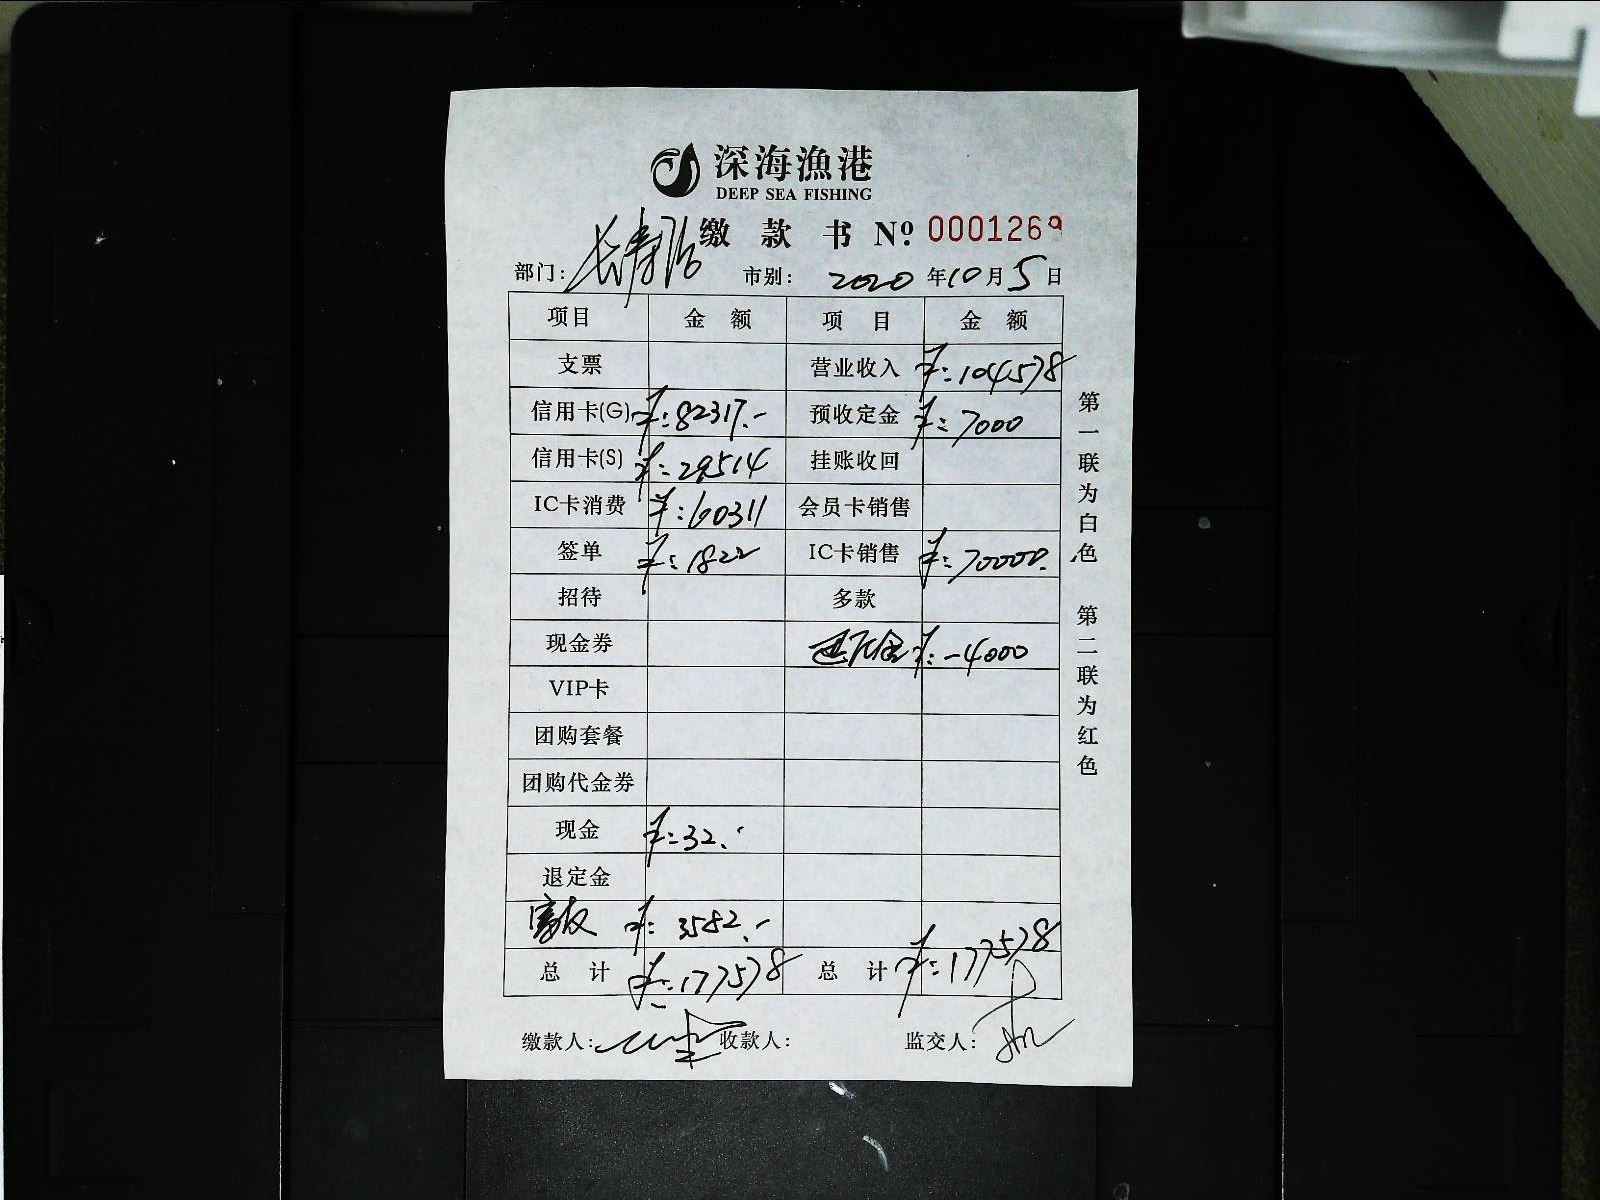 深海漁港
DEEP SEA FISHING
缴款书 Nº: 0001269
部门: 长寿路 市别: 2020年10月5日
项目 金额 项目 金额
支票 营业收入 ¥:104578
信用卡(G) ¥:82317.- 预收定金 ¥:7000
信用卡(S) ¥:29514 挂账收回
IC卡消费 ¥:60311 会员卡销售
签单 ¥:1822 IC卡销售 ¥:70000.
招待 多款
现金券 退定金 ¥:-4000
VIP卡
团购套餐
团购代金券
现金 ¥:32.-
退定金
富友 ¥:3582.-
总计 ¥:177578 总计 ¥:177578
缴款人: 收款人: 监交人:
第一联为白色 第二联为红色